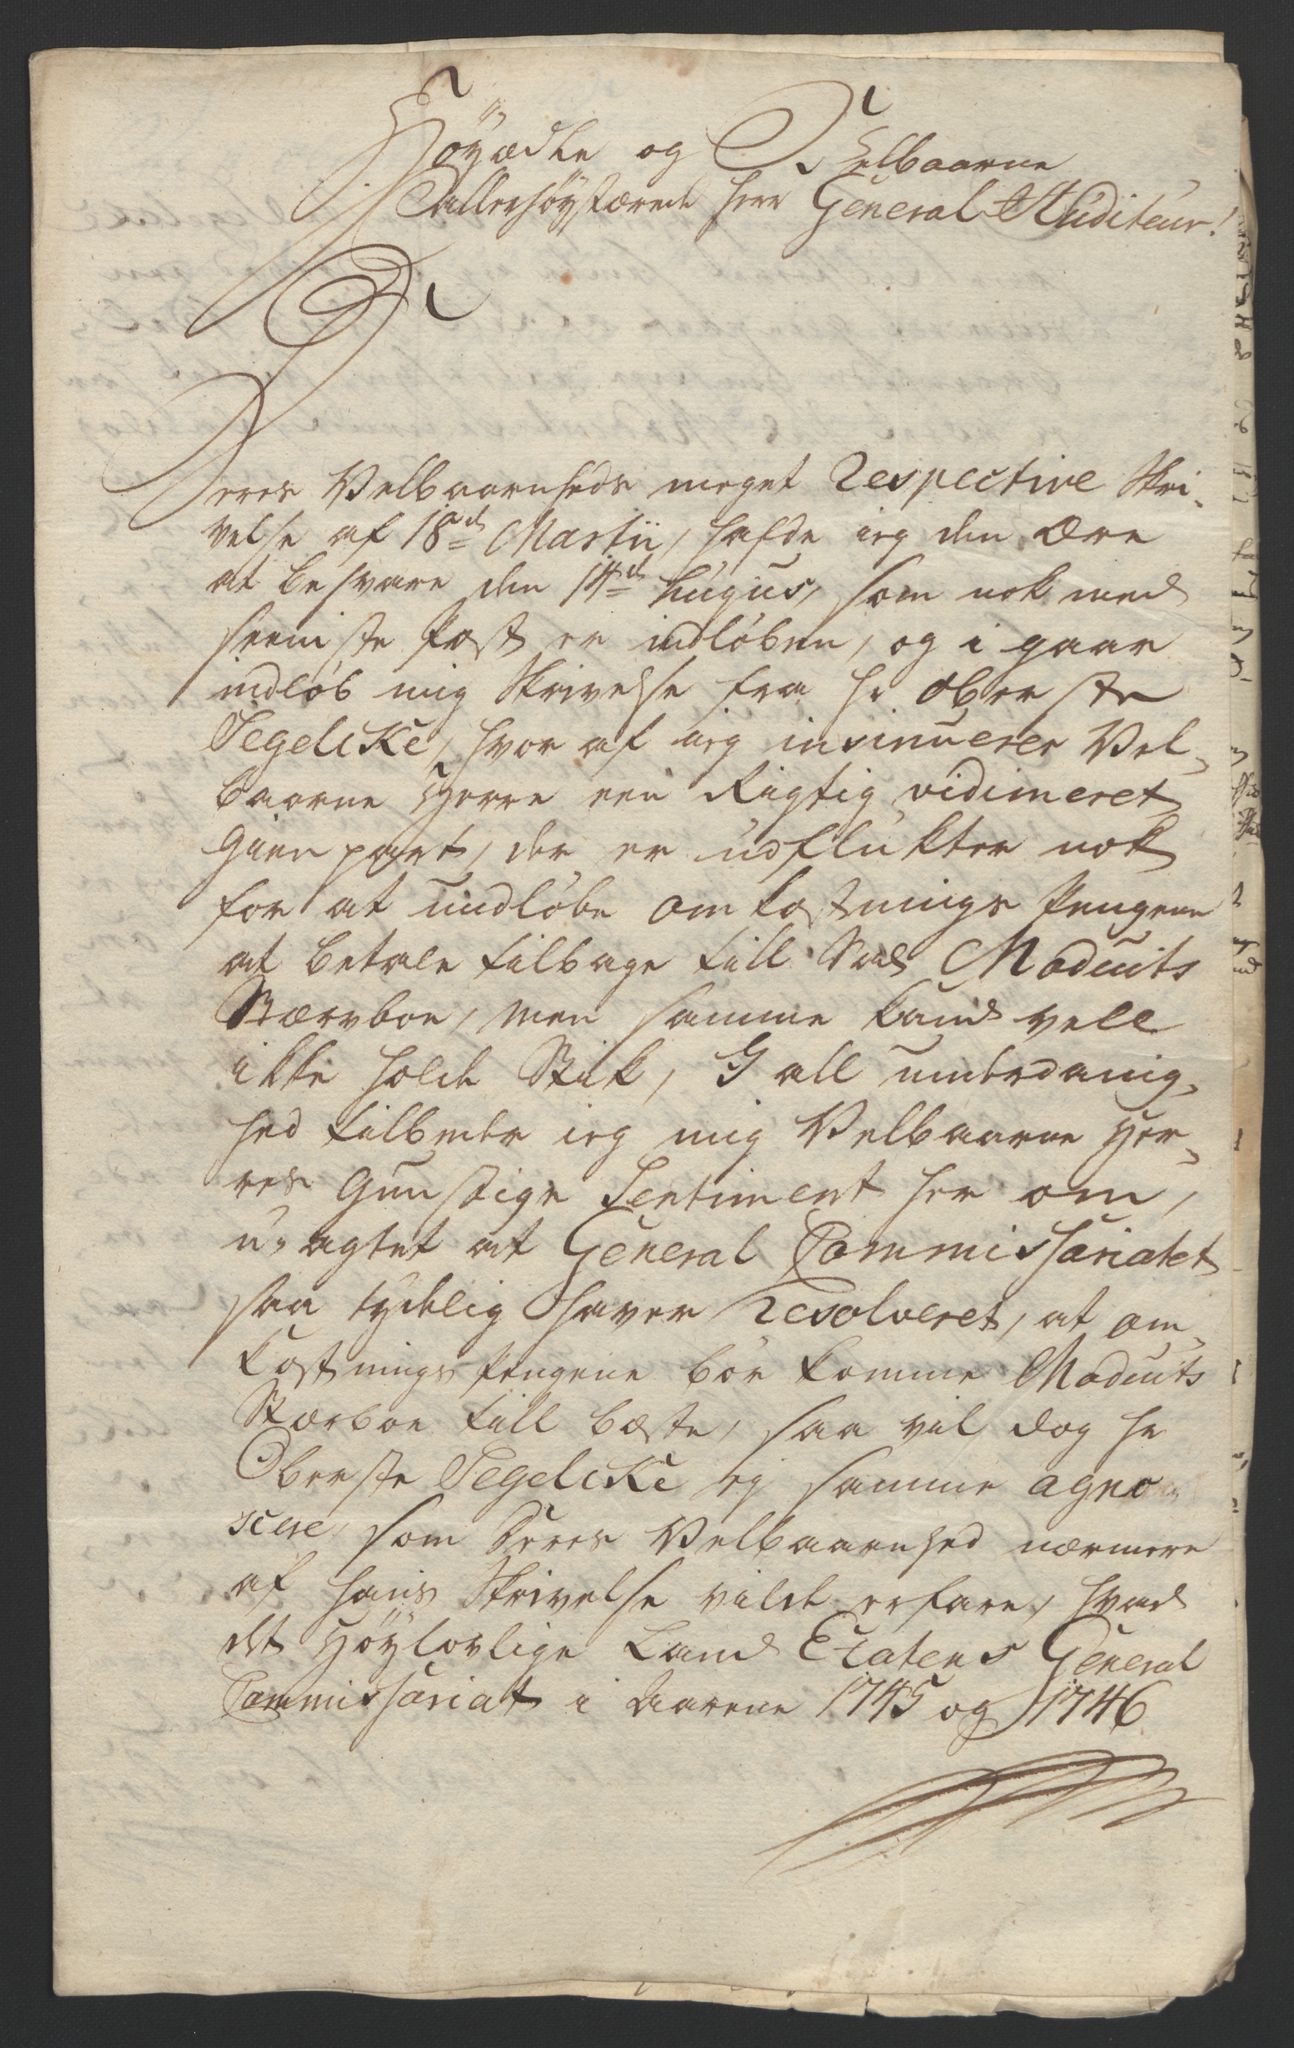 Höyædle og Velbaarne
Allerhøystærede Herr General Auditeur!
Deres Velbaarenheds meget Respective Skri-
velse af 18de Martii, hafde ieg den Ære
at besvare den 14de Augus, som nok med
seeniste Post er indløben, og i gaar
indløb mig Skrivelse fra Hr Oberste
Segelcke, hvor af ieg insinuerer Vel-
baarne Herre een Rigtig vidimeret
Gienpart, der er udflukter nok
for at undløbe omkostnings Pengene
at betale tilbage till Sal Moduits
Stærvboe, men samme kand vell
ikke holde Stik, I all underdanig-
hed udbeder ieg mig Velbaarne Her-
res Gunstige Sentiment her om,
u-agtet at General Commissariatet
saa tydelig haver Resolveret, at om-
kostnings Pengene bör komme Moduits
Stærboe till bæste, saa vil dog Hr
Oberste Segelcke ey samme agno-
scere, som Deres Velbaarenhed nærmere
af hans Skrivelse vilde erfare, hvad
det Höylovlige Land Etatens General
Commissariat i Aarene 1745 og 1746